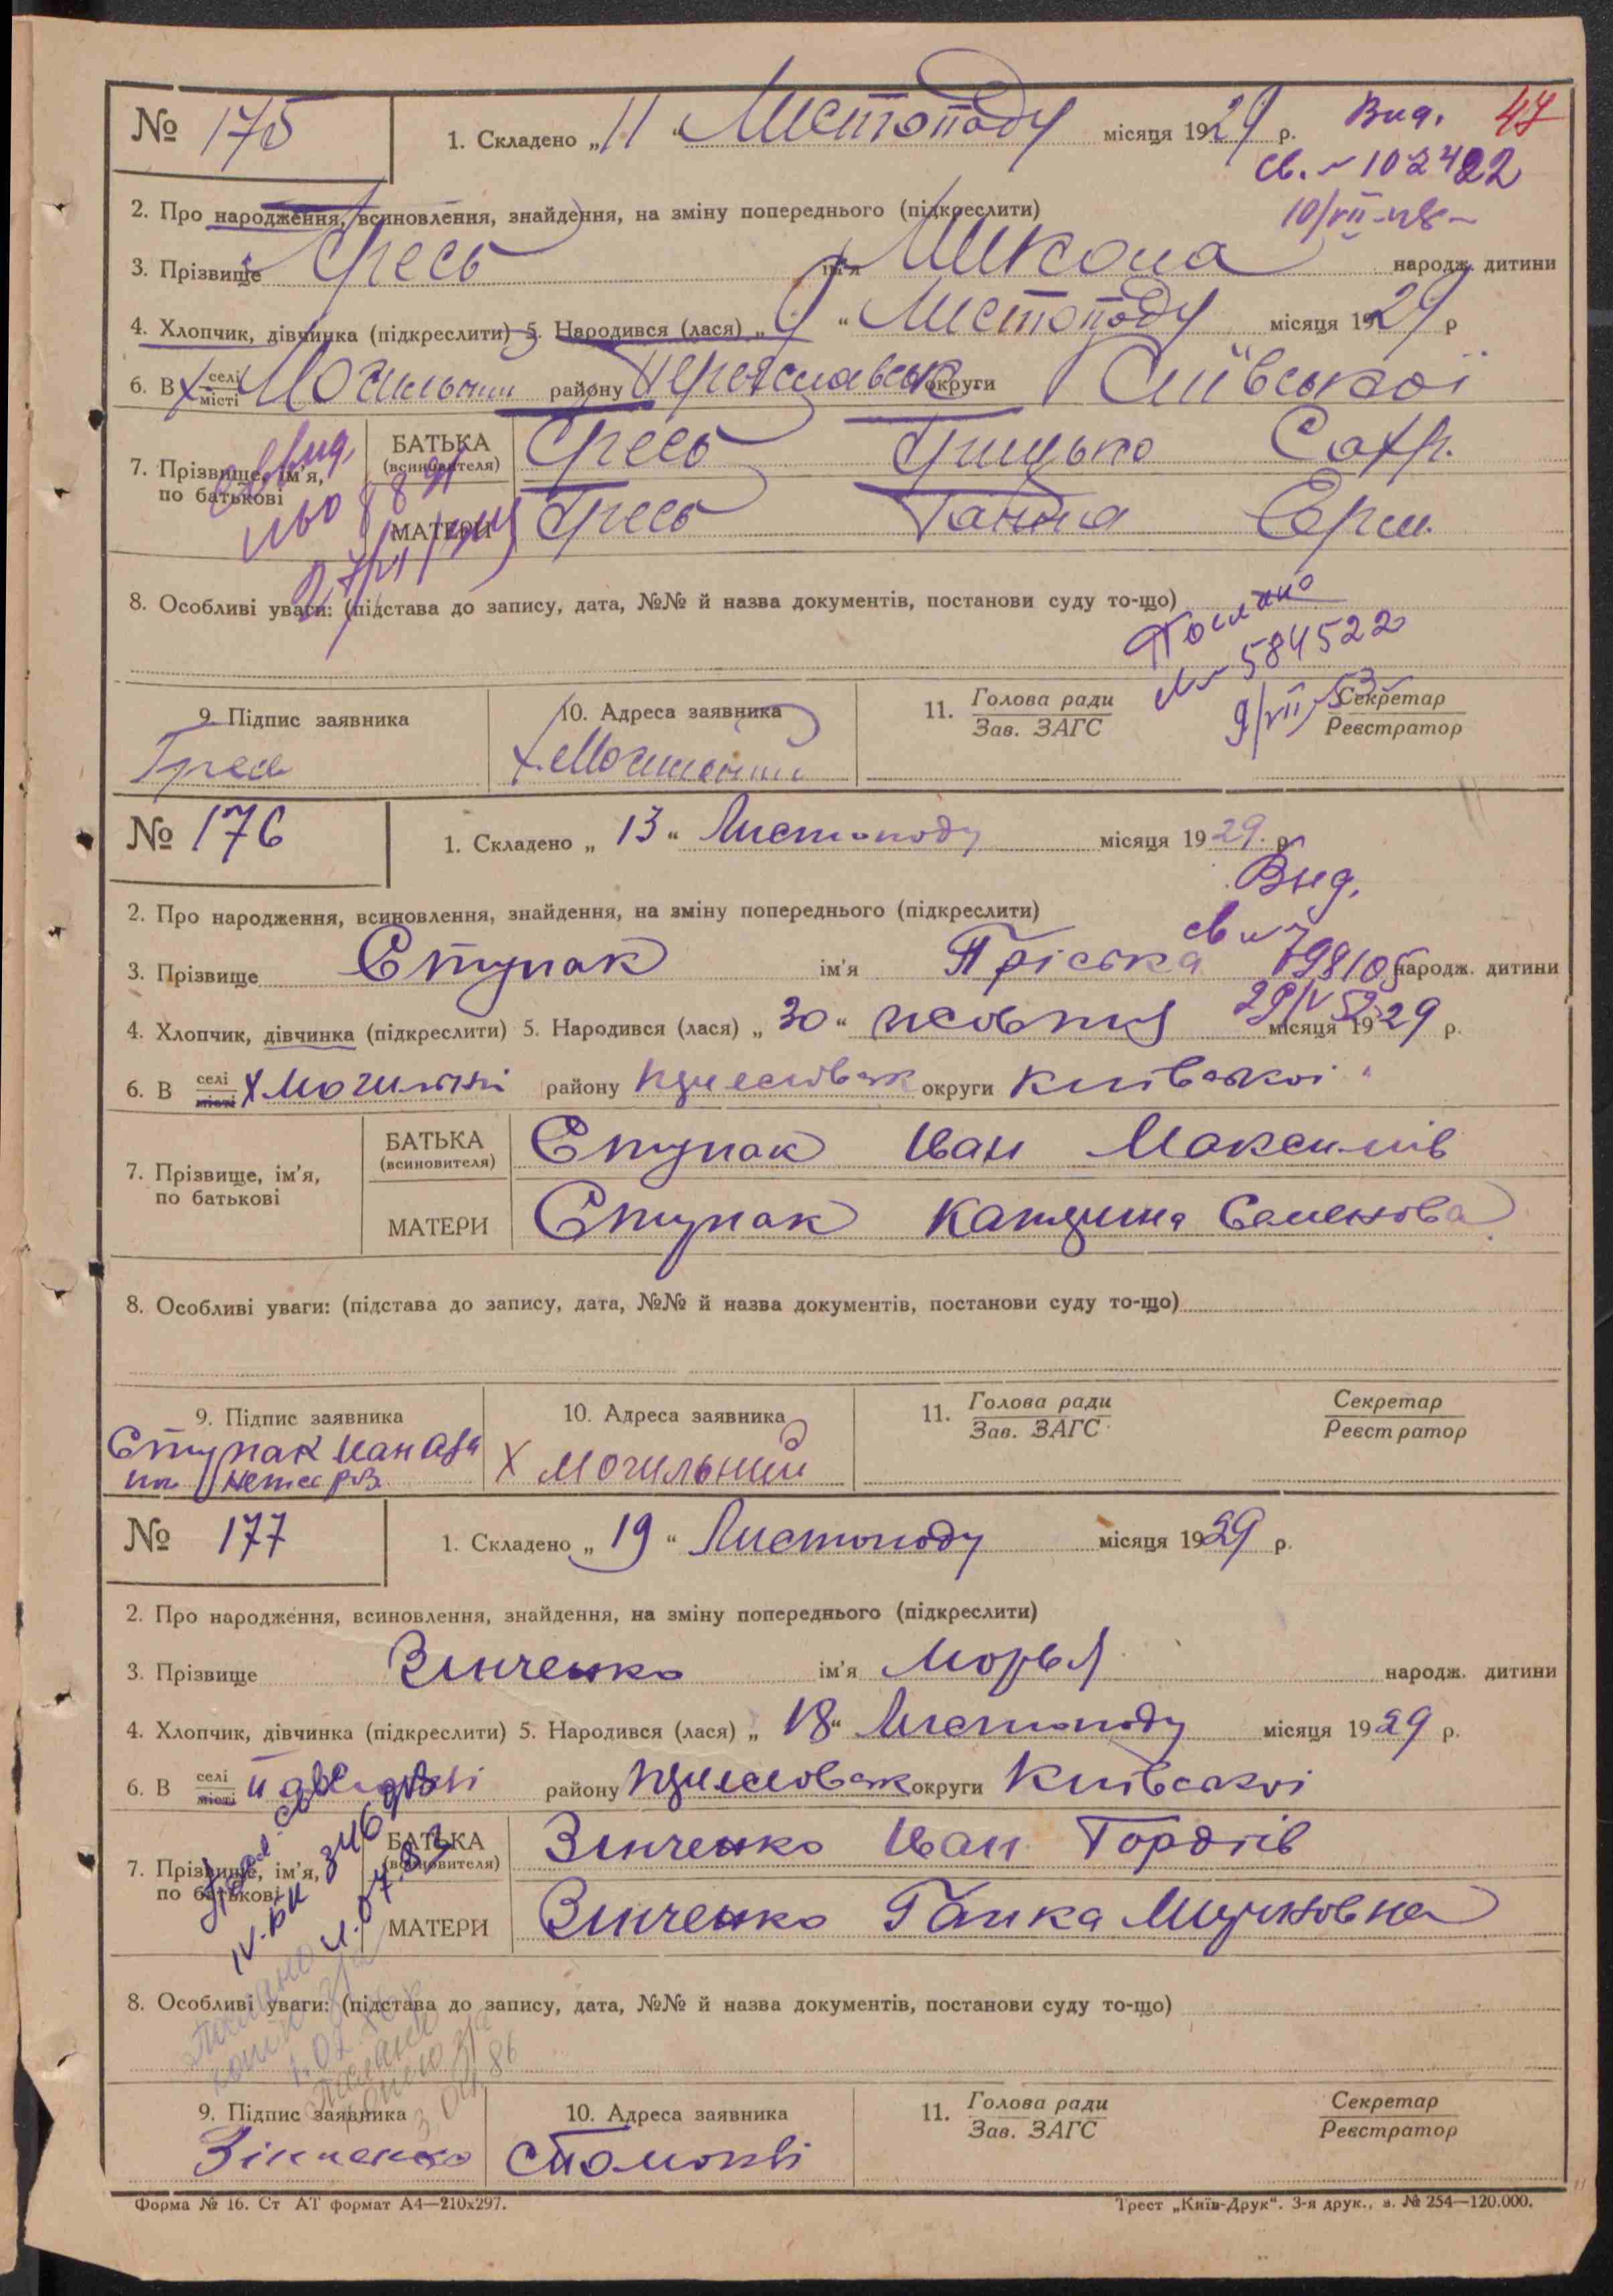 № 175 1. Складено „ 11 “ Листопаду місяця 1929 р. Вид. 47
св. № 102422
10/VII-48
2. Про народження, всиновлення, знайдення, на зміну попереднього (підкреслити)
3. Прізвище Гресь ім'я Микола народж. дитини
4. Хлопчик, дівчинка (підкреслити) 5. Народився (лася) „ 9 “ Листопаду місяця 1929 р
6. В селі місті х Могильний району Переяславськ округи Київської
7. Прізвище, ім'я, по батькові
БАТЬКА (всиновителя) Гресь Грицько
МАТЕРИ Гресь Ганна
8. Особливі уваги: (підстава до запису, дата, №№ й назва документів, постанови суду то-що)
Послано
№ 584522
9/VII 53
9. Підпис заявника 10. Адреса заявника 11. Голова ради Зав. ЗАГС Секретар Реєстратор
Гресь х. Могильний
№ 176 1. Складено „ 13 “ Листоподу місяця 1929. р.
Вид.
2. Про народження, всиновлення, знайдення, на зміну попереднього (підкреслити)
св №
3. Прізвище Ступак ім'я Пріська 798105 народж. дитини
29/V 52
4. Хлопчик, дівчинка (підкреслити) 5. Народився (лася) „ 30 “ жовтня місяця 1929 р.
6. В селі місті Х Могильні району округи Київської
7. Прізвище, ім'я, по батькові
БАТЬКА (всиновителя) Ступак Иван Максимів
МАТЕРИ Ступак Катерина Семенова
8. Особливі уваги: (підстава до запису, дата, №№ й назва документів, постанови суду то-що)
9. Підпис заявника 10. Адреса заявника 11. Голова ради Зав. ЗАГС Секретар Реєстратор
Ступак Иван
Х Могильний
№ 177 1. Складено „ 19 “ Листоподу місяця 1929 р.
2. Про народження, всиновлення, знайдення, на зміну попереднього (підкреслити)
3. Прізвище Зинченко ім'я Морья народж. дитини
4. Хлопчик, дівчинка (підкреслити) 5. Народився (лася) „ 18 “ Листоподу місяця 1929 р.
6. В селі місті району округи Київської
7. Прізвище, ім'я, по батькові
БАТЬКА (всиновителя) Зинченко Иван Гордіів
МАТЕРИ Зинченко Галка
8. Особливі уваги: (підстава до запису, дата, №№ й назва документів, постанови суду то-що)
9. Підпис заявника 10. Адреса заявника 11. Голова ради Зав. ЗАГС Секретар Реєстратор
Зінченко Стомокві
Форма № 16. Ст АТ формат А4—210х297. Трест „Київ-Друк“. 3-я друк., з. № 254—120.000.